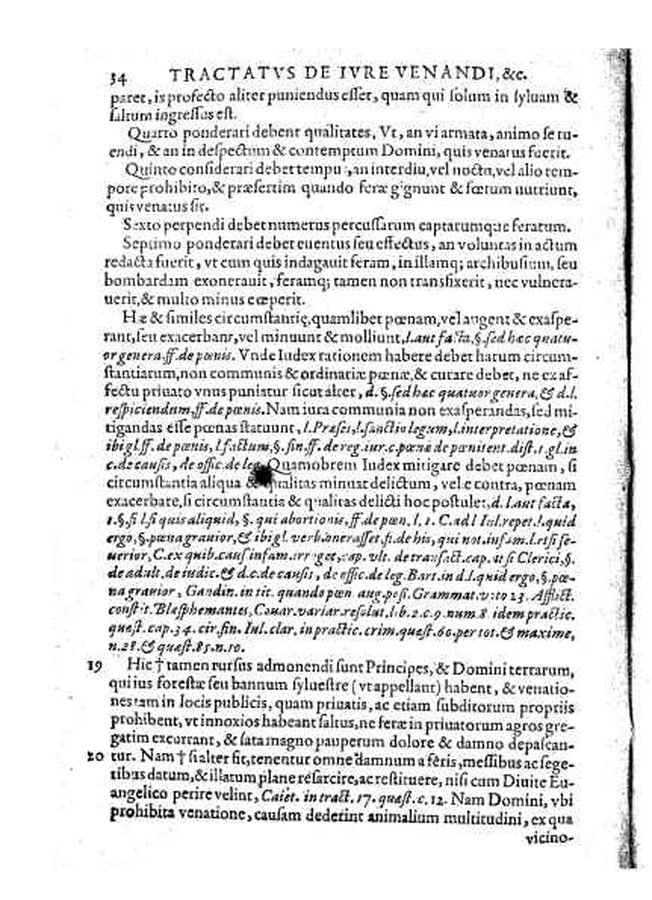 34 TRACTATVS DE IVRE VENANDI, &c.
paret, is profecto aliter puniendus esset, quam qui solum in syluam &
saltum ingressus est.
Quarto ponderari debent qualitates, Vt, an vi armata, animo se tu-
endi, & an in despectum & contemptum Domini, quis venatus fuerit.
Quinto considerari debet tempus, an interdiu, vel noctu, vel alio tem-
pore prohibito, & præsertim quando feræ gignunt & fœtum nutriunt,
quis venatus sit.
Sexto perpendi debet numerus percussarum captarumque ferarum.
Septimo ponderari debet euentus seu effectus, an voluntas in actum
redacta fuerit, vt cum quis indagauit feram, in illamq; archibusium, seu
bombardam exonerauit, feramq; tamen non transfixerit, nec vulnera-
uerit, & multo minus cœperit.
Hæ & similes circumstantię, quamlibet pœnam, vel augent & exaspe-
rant, seu exacerbant, vel minuunt & molliunt, l. aut facta, §. sed hæc quatu-
or genera, ff. de pœnis. Vnde Iudex rationem habere debet harum circum-
stantiarum, non communis & ordinariæ pœnæ, & curare debet, ne ex af-
fectu priuato vnus puniatur sicut alter, d. §. sed hæc quatuor genera, & d. l.
respiciendum, ff. de pœnis. Nam iura communia non exasperandas, sed mi-
tigandas esse pœnas statuunt, l. Præses, l. sanctio legum, l. interpretatione, &
ibi gl. ff. de pœnis, l. factum, §. fin. ff. de reg. iur. c. pœnæ de pœnitent. dist. 1. gl. in
c. de causis, de offic. de leg. Quamobrem Iudex mitigare debet pœnam, si
circumstantia aliqua & qualitas minuat delictum, vel e contra, pœnam
exacerbare, si circumstantia & qualitas delicti hoc postulet, d. l. aut facta,
1. §. si l. si quis aliquid, §. qui abortionis, ff. de pœn. l. 1. C. ad l. Iul. repet. l. quid
ergo, §. pœna grauior, & ibi gl. verb. onerasset, ff. de his, qui not. infam. l. etsi se-
uerior, C. ex quib. caus. infam. irroget, cap. vlt. de transact. cap. at si Clerici, §.
de adult. de iudic. & d. c. de causis, de offic. de leg. Bart. in d. l. quid ergo, §. pœ-
na grauior, Gandin. in tit. quando pœn. aug. poss. Grammat. voto 23. Afflict.
constit. Blasphemantes, Couar. variar. resolut. lib. 2. c. 9. num. 8 idem practic.
quæst. cap. 34. cir. fin. Iul. clar. in practic. crim. quæst. 60. per tot. & maxime,
n. 28. & quæst. 85. n. 10.
19 Hic † tamen rursus admonendi sunt Principes, & Domini terrarum,
qui ius forestæ seu bannum syluestre (vt appellant) habent, & venatio-
nes tam in locis publicis, quam priuatis, ac etiam subditorum propriis
prohibent, vt innoxios habeant saltus, ne feræ in priuatorum agros gre-
gatim excurrant, & sata magno pauperum dolore & damno depascan-
20 tur. Nam † si alter sit, tenentur omne damnum a feris, messibus ac sege-
tibus datum, & illatum plane resarcire, ac restituere, nisi cum Diuite Eu-
angelico perire velint, Caiet. in tract. 17. quæst. c. 12. Nam Domini, vbi
prohibita venatione, causam dederint animalium multitudini, ex qua
vicino-